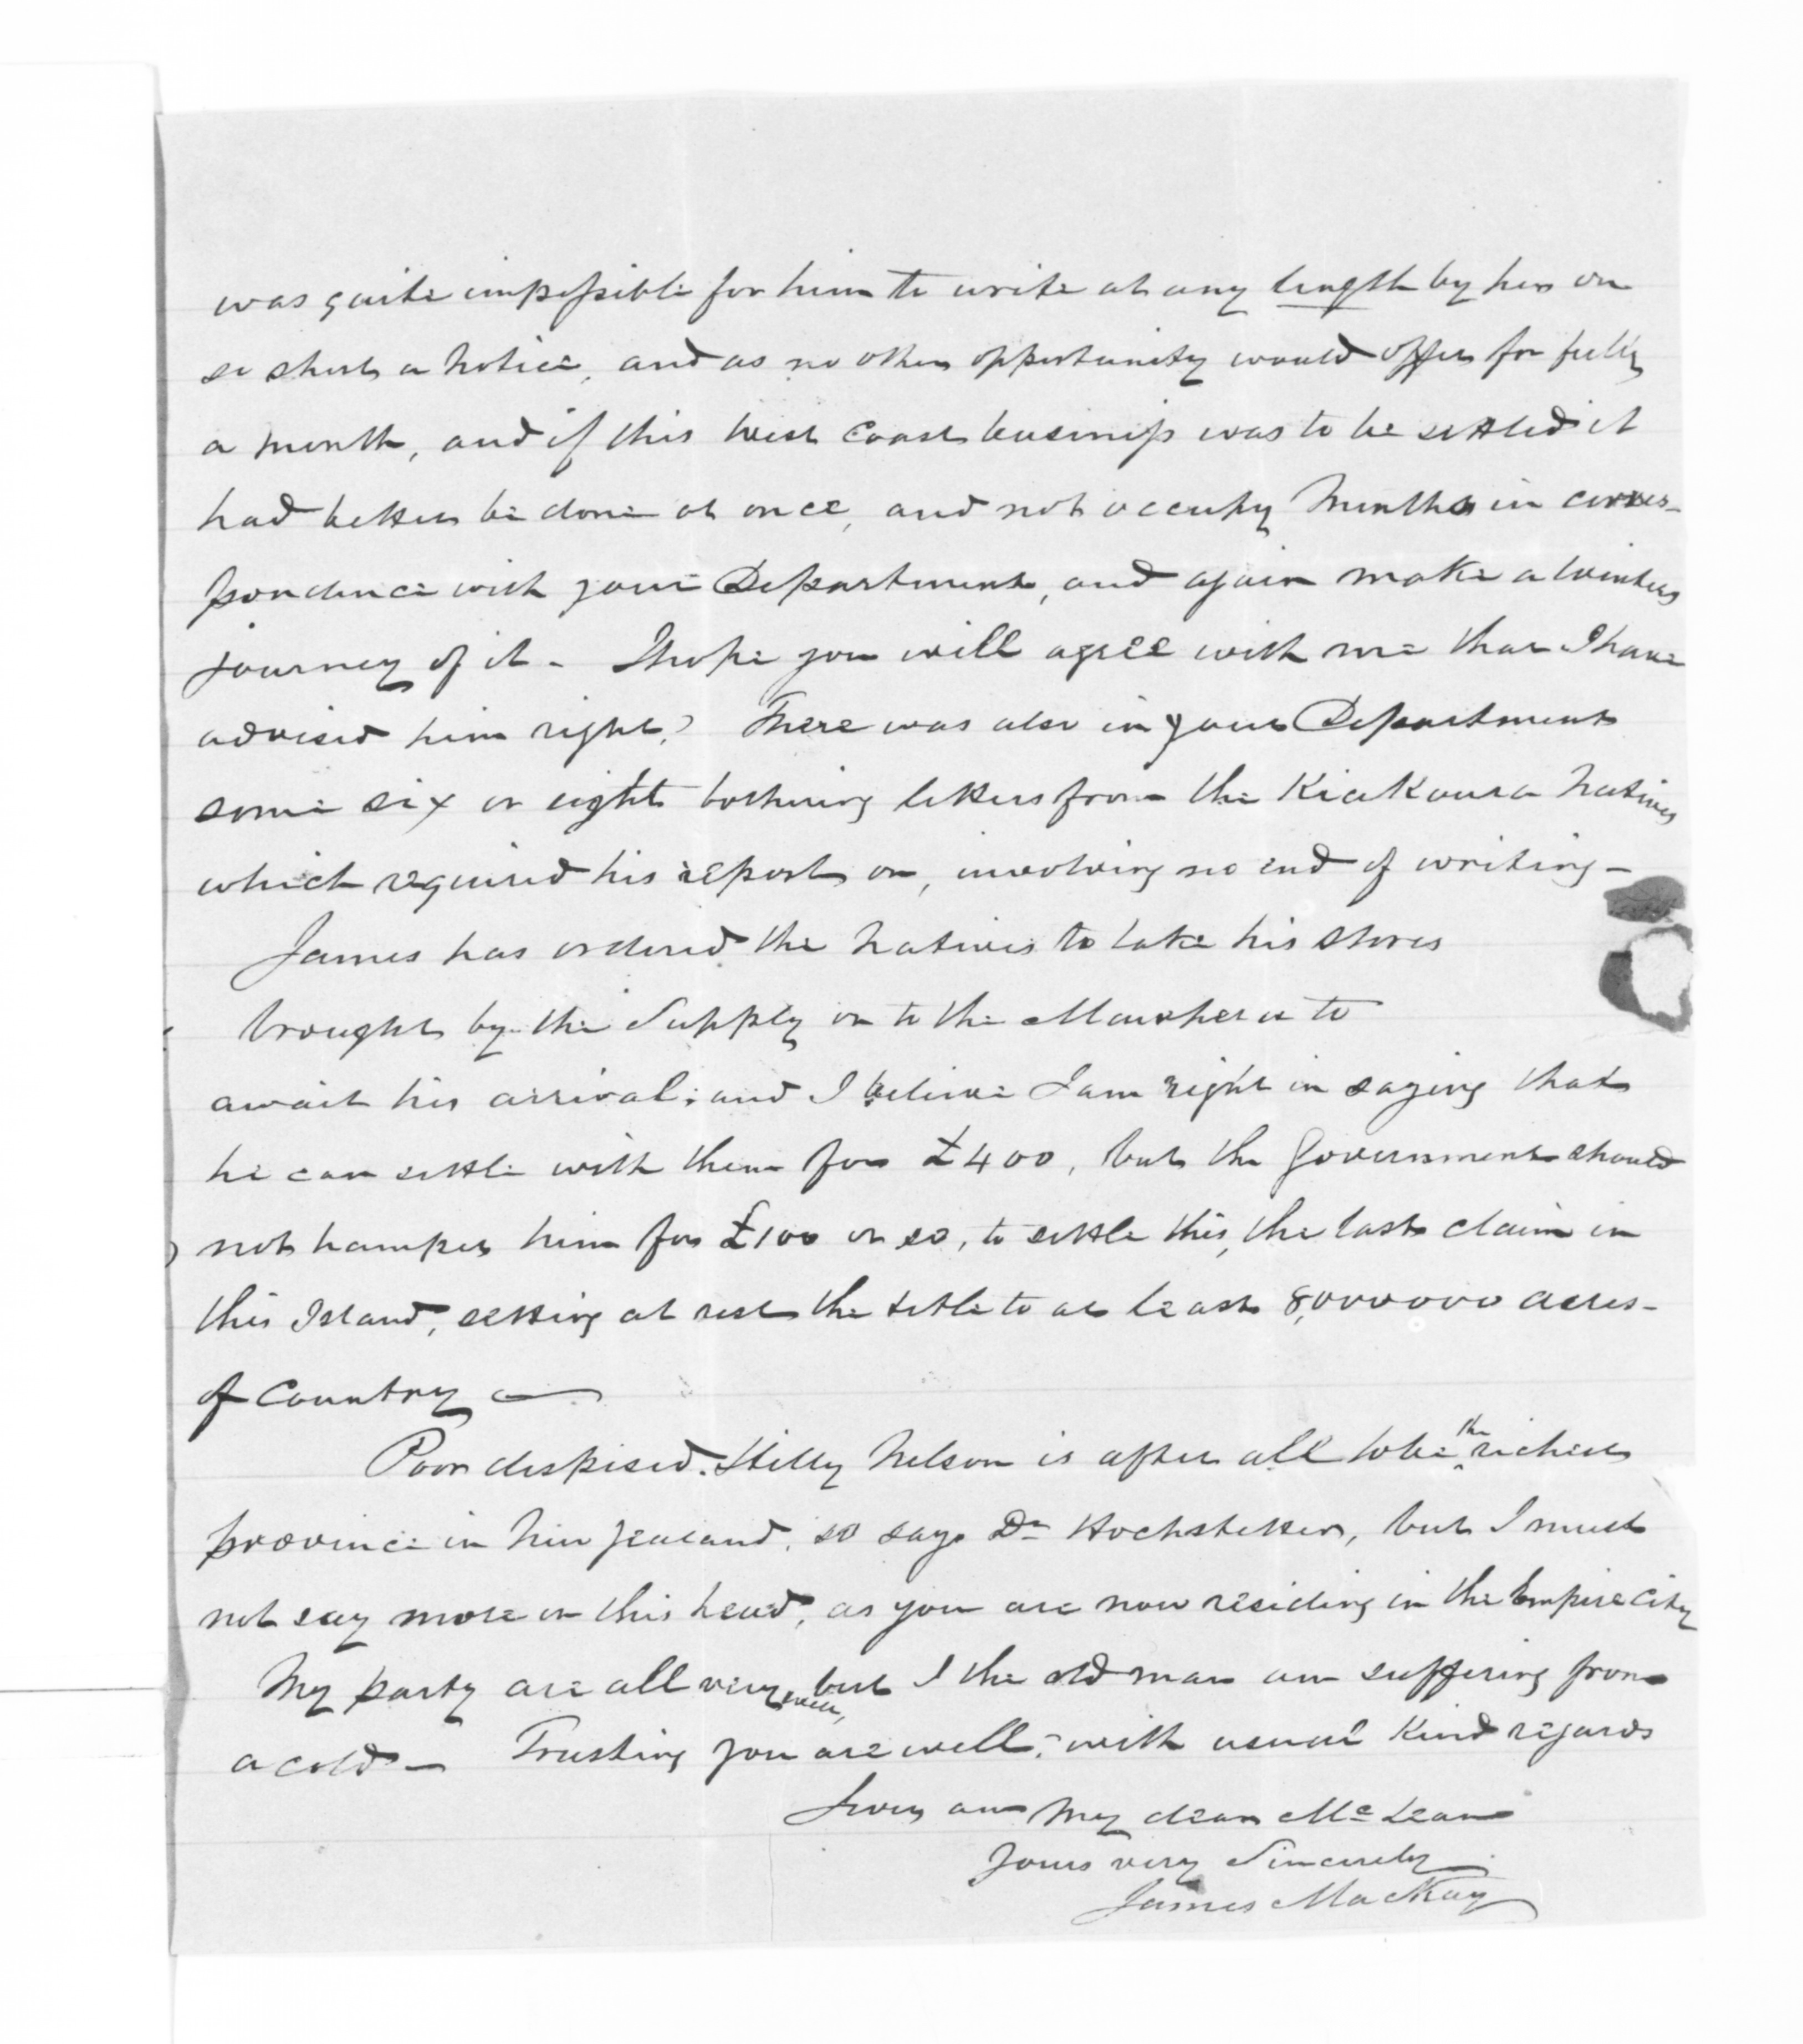 was quite impossible for him to write at any length by her on
so short a notice, and as no other opportunity would offer for fully
a month, and if this West Coast business was to be settled it
had better be done at once, and not occupy Months in corres-
pondence with your Department, and again make a Winters
journey of it - I hope you will agree with me that I have
advised him right? There was also in your Department
some six or eight bothering letters from the KiaKoura Natives
which required his report on, involving no end of writing -
James has ordered the Natives to take his stores
brought by the Supply on to the to
await his arrival; and I believe I am right in saying that
he can settle with them for £400, but the Government should
not hamper him for £100 or so, to settle this, the last claim in
this Island, setting at rest the title to at least 8,000000 acres -
of Country —
Poor despised Hilly Nelson is after all to be the richest
province in New Zealand, so says Dr Hochstetter, but I must
not say more on this head, as you are now residing in the Empire City
My party are all very well, but I the old man am suffering from
a cold - Trusting you are well, with usual Kind regards
Ever am My dear McLean
Yours very Sincerely
James MacKay